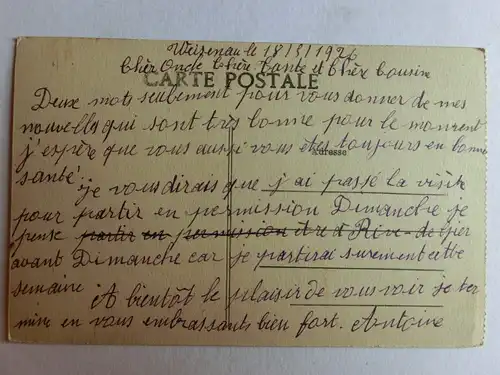 Weisenau le 18/3/1926
Chèr Oncle Chère Tante et Chèr Cousin
CARTE POSTALE
Deux mots seulement pour vous donner de mes
nouvelles qui sont très bonne pour le moment
j'espère que vous aussi vous êtes toujours en bonne
Adresse
santé. Je vous dirais que j'ai passé la visite
pour partir en permission Dimanche je
pense partir en permission être à Rive-de-Gier
avant Dimanche car je partirai surement cette
semaine A bientôt le plaisir de vous voir je ter
mine en vous embrassants bien fort. Antoine